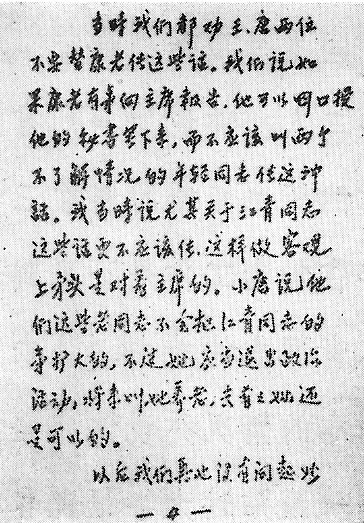 当时我们都劝王、唐两位
不要替康老传这些话。我们说如
果康老有事向主席报告，他可以口授
他的秘书节下来，而不应该叫两个
不了解情况的年轻同志传这种
话。我当时说尤其关于江青同志
这些话更不应该传，这样做客观
上矛头是对着主席的。小唐说他
们这些老同志不会把江青同志的
事扩大的，不过她应当退出政治
活动，将来叫她养老，夹着之她还
是可以的。
以后我们其他没有问起她
— 4 —